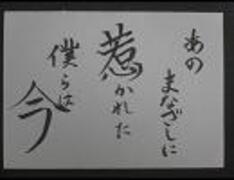 あの
まなざしに
惹かれた
僕らは
今